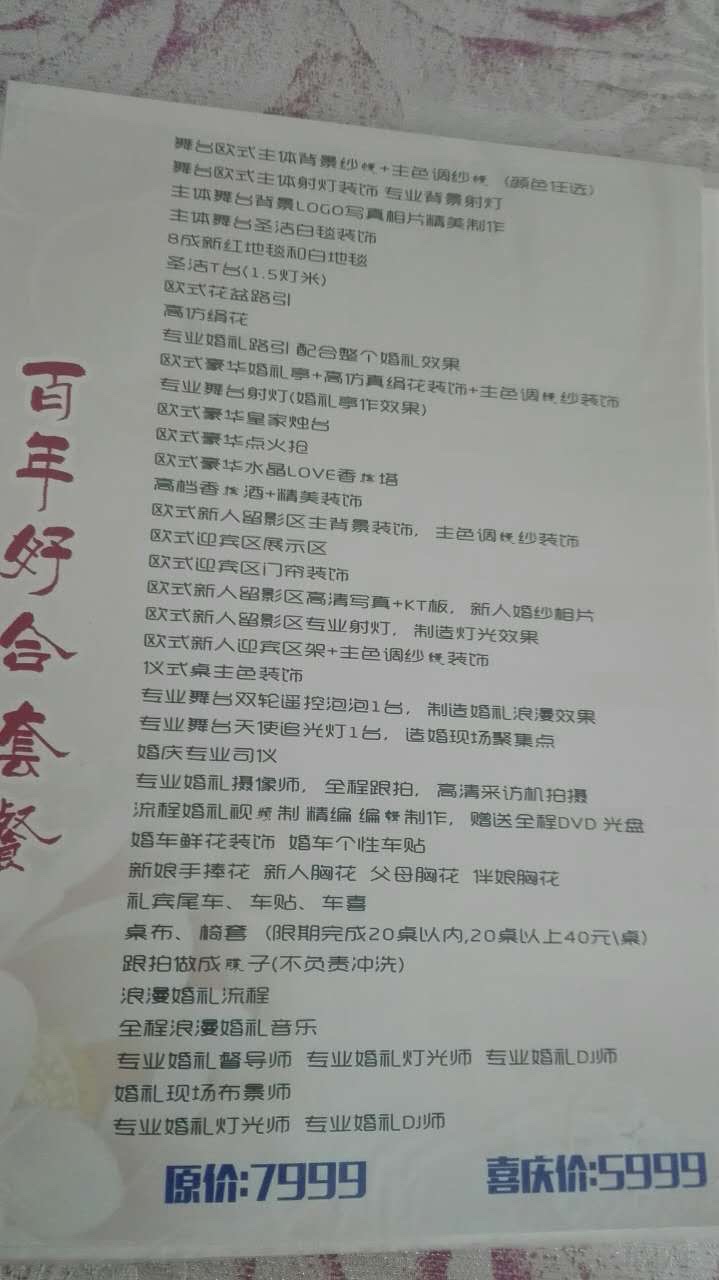 百年好合套餐
舞台欧式主体背景纱幔+主色调纱幔 (颜色任选)
舞台欧式主体射灯装饰 专业背景射灯
主体舞台背景LOGO写真相片精美制作
主体舞台圣洁白毯装饰
8成新红地毯和白地毯
圣洁T台(1.5灯米)
欧式花盆路引
高仿绢花
专业婚礼路引 配合整个婚礼效果
欧式豪华婚礼亭+高仿真绢花装饰+主色调幔纱装饰
专业舞台射灯(婚礼亭作效果)
欧式豪华皇家烛台
欧式豪华点火抢
欧式豪华水晶LOVE香槟塔
高档香槟酒+精美装饰
欧式新人留影区主背景装饰，主色调幔纱装饰
欧式迎宾区展示区
欧式迎宾区门帘装饰
欧式新人留影区高清写真+KT板，新人婚纱相片
欧式新人留影区专业射灯，制造灯光效果
欧式新人迎宾区架+主色调纱幔装饰
仪式桌主色装饰
专业舞台双轮遥控泡泡1台，制造婚礼浪漫效果
专业舞台天使追光灯1台，造婚现场聚集点
婚庆专业司仪
专业婚礼摄像师，全程跟拍，高清采访机拍摄
流程婚礼视频制 精编 编辑制作，赠送全程DVD 光盘
婚车鲜花装饰 婚车个性车贴
新娘手捧花 新人胸花 父母胸花 伴娘胸花
礼宾尾车、车贴、车喜
桌布、椅套 (限期完成20桌以内,20桌以上40元\桌)
跟拍做成膜子(不负责冲洗)
浪漫婚礼流程
全程浪漫婚礼音乐
专业婚礼督导师 专业婚礼灯光师 专业婚礼DJ师
婚礼现场布景师
专业婚礼灯光师 专业婚礼DJ师
原价:7999 喜庆价:5999